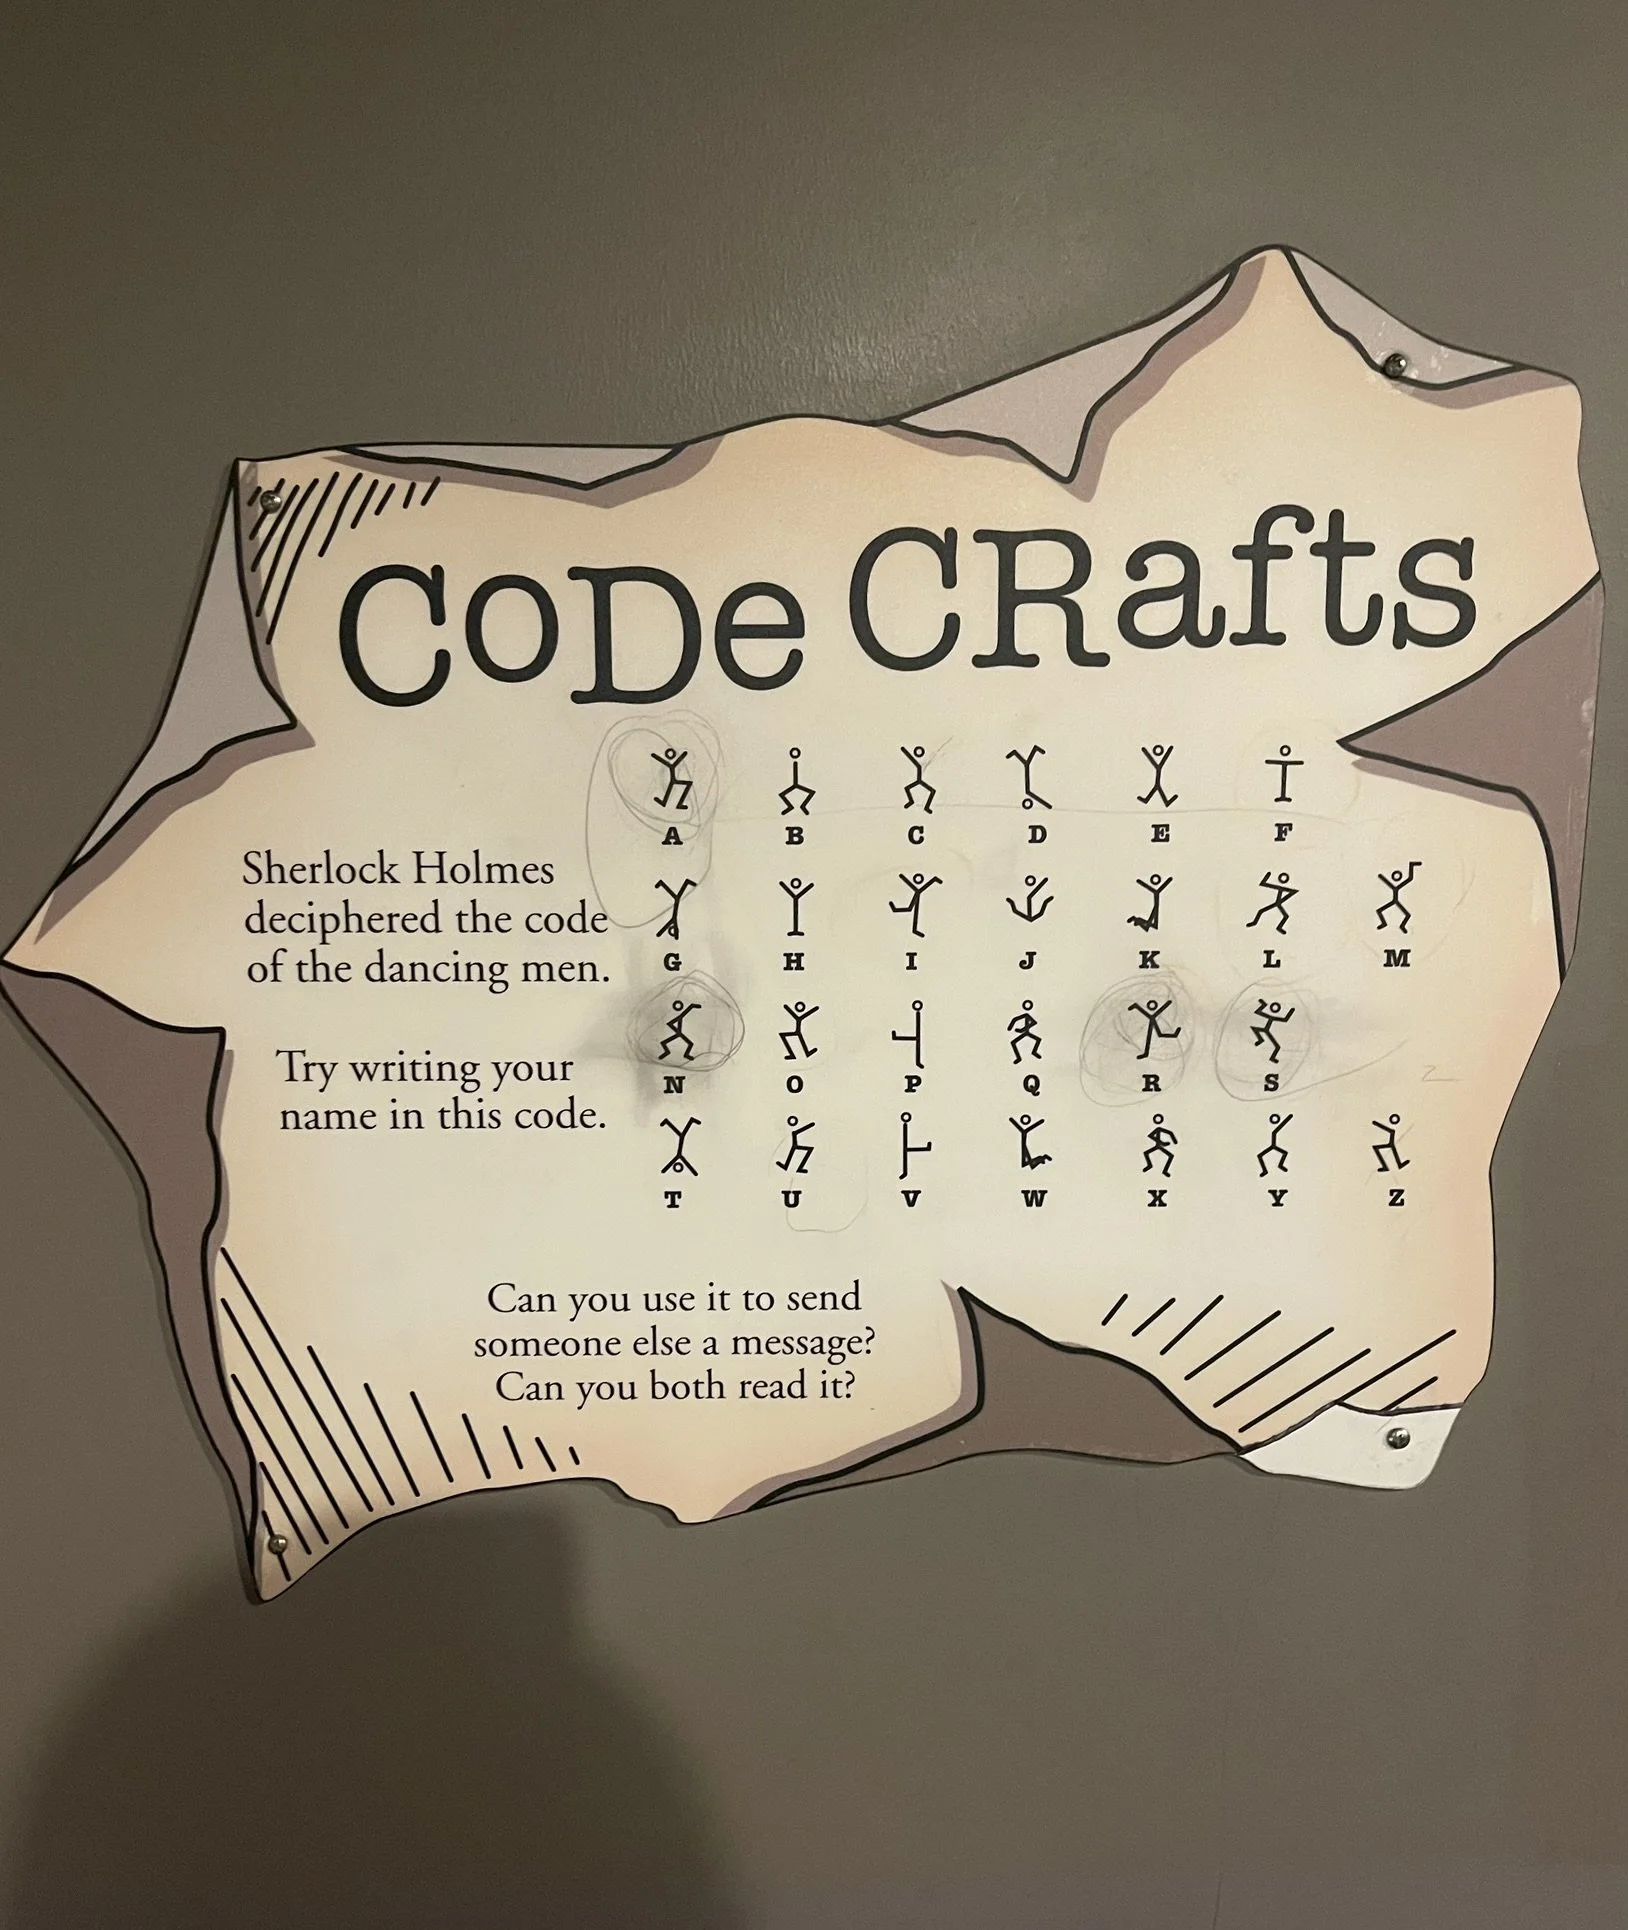 CoDe CRafts
A B C D E F
Sherlock Holmes
deciphered the code
of the dancing men.
G H I J K L M
Try writing your
name in this code.
N O P Q R S
T U V W X Y Z
Can you use it to send
someone else a message?
Can you both read it?